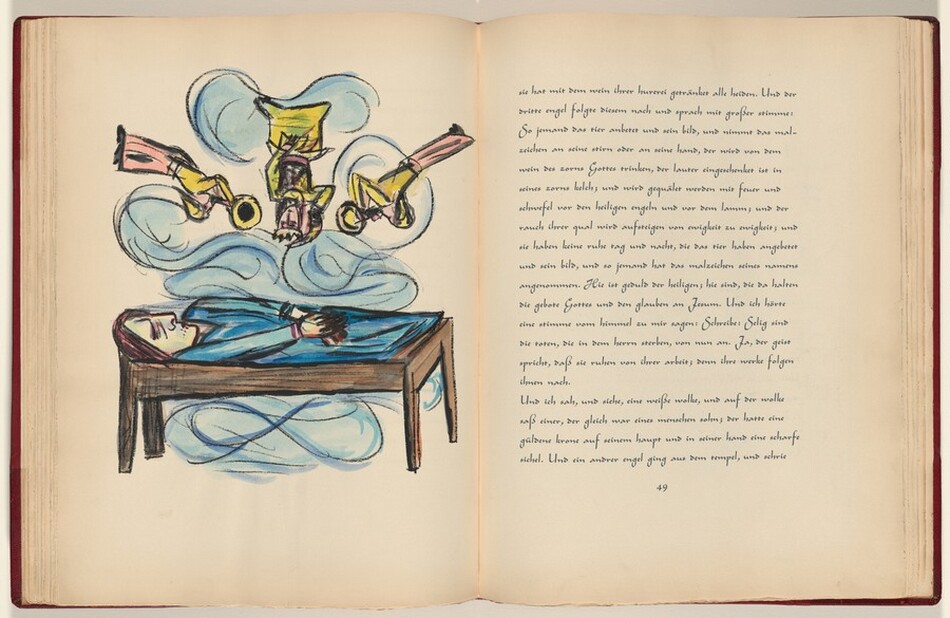 sie hat mit dem wein ihrer hurerei getränket alle heiden. Und der
dritte engel folgte diesem nach und sprach mit großer stimme:
So jemand das tier anbetet und sein bild, und nimmt das mal-
zeichen an seine stirn oder an seine hand, der wird von dem
wein des zorns Gottes trinken, der lauter eingeschenket ist in
seines zorns kelch; und wird gequälet werden mit feuer und
schwefel vor den heiligen engeln und vor dem lamm; und der
rauch ihrer qual wird aufsteigen von ewigkeit zu ewigkeit; und
sie haben keine ruhe tag und nacht, die das tier haben angebetet
und sein bild, und so jemand hat das malzeichen seines namens
angenommen. Hie ist geduld der heiligen; hie sind, die da halten
die gebote Gottes und den glauben an Jesum. Und ich hörte
eine stimme vom himmel zu mir sagen: Schreibe: Selig sind
die toten, die in dem herrn sterben, von nun an. Ja, der geist
spricht, daß sie ruhen von ihrer arbeit; denn ihre werke folgen
ihnen nach.
Und ich sah, und siehe, eine weiße wolke, und auf der wolke
saß einer, der gleich war eines menschen sohn; der hatte eine
güldene krone auf seinem haupt und in seiner hand eine scharfe
sichel. Und ein andrer engel ging aus dem tempel, und schrie
49